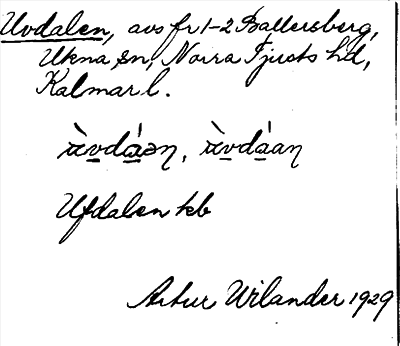 Uvdalen, avs fr 1-2 Ballersberg,
Ukna sn, Norra Tjusts hd,
Kalmar l.
ùvdáən, ùvdáan
Ufdalen kb
Artur Wilander 1929